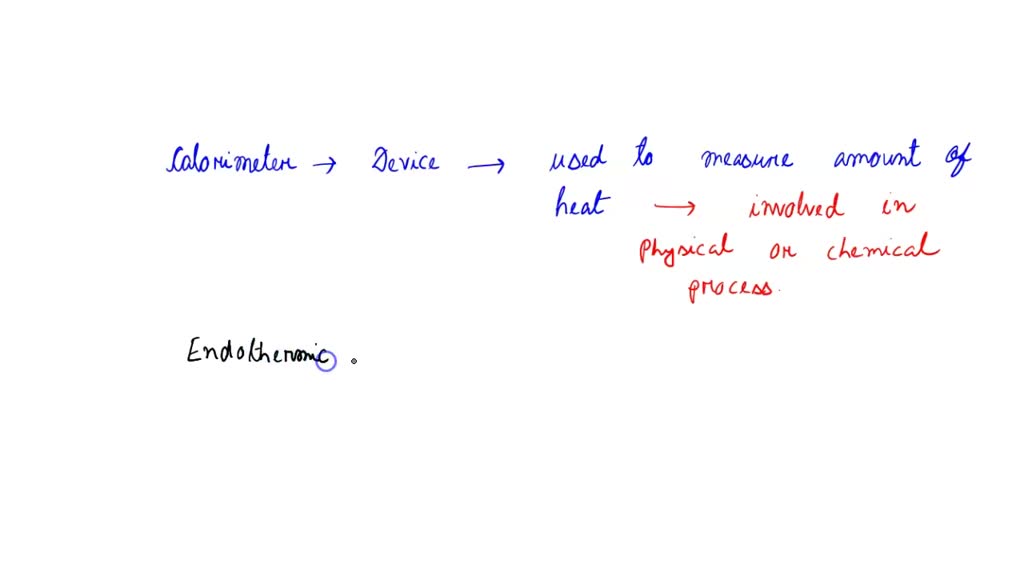 Calorimeter → Device → used to measure amount of
heat → involved in
physical or chemical
process.
Endothermic